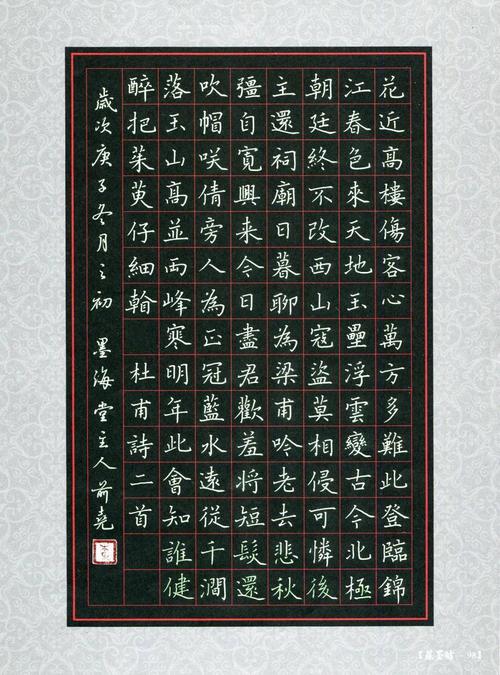 花近高樓傷客心萬方多難此登臨錦
江春色來天地玉壘浮雲變古今北極
朝廷終不改西山寇盜莫相侵可憐後
主還祠廟日暮聊為梁甫吟老去悲秋
彊自寬興来今日盡君歡羞將短髮還
吹帽咲倩旁人為正冠藍水遠從千澗
落玉山高並兩峰寒明年此會知誰健
醉把茱萸仔細翰 杜甫詩二首
歲次庚子冬月之初 墨海堂主人前堯